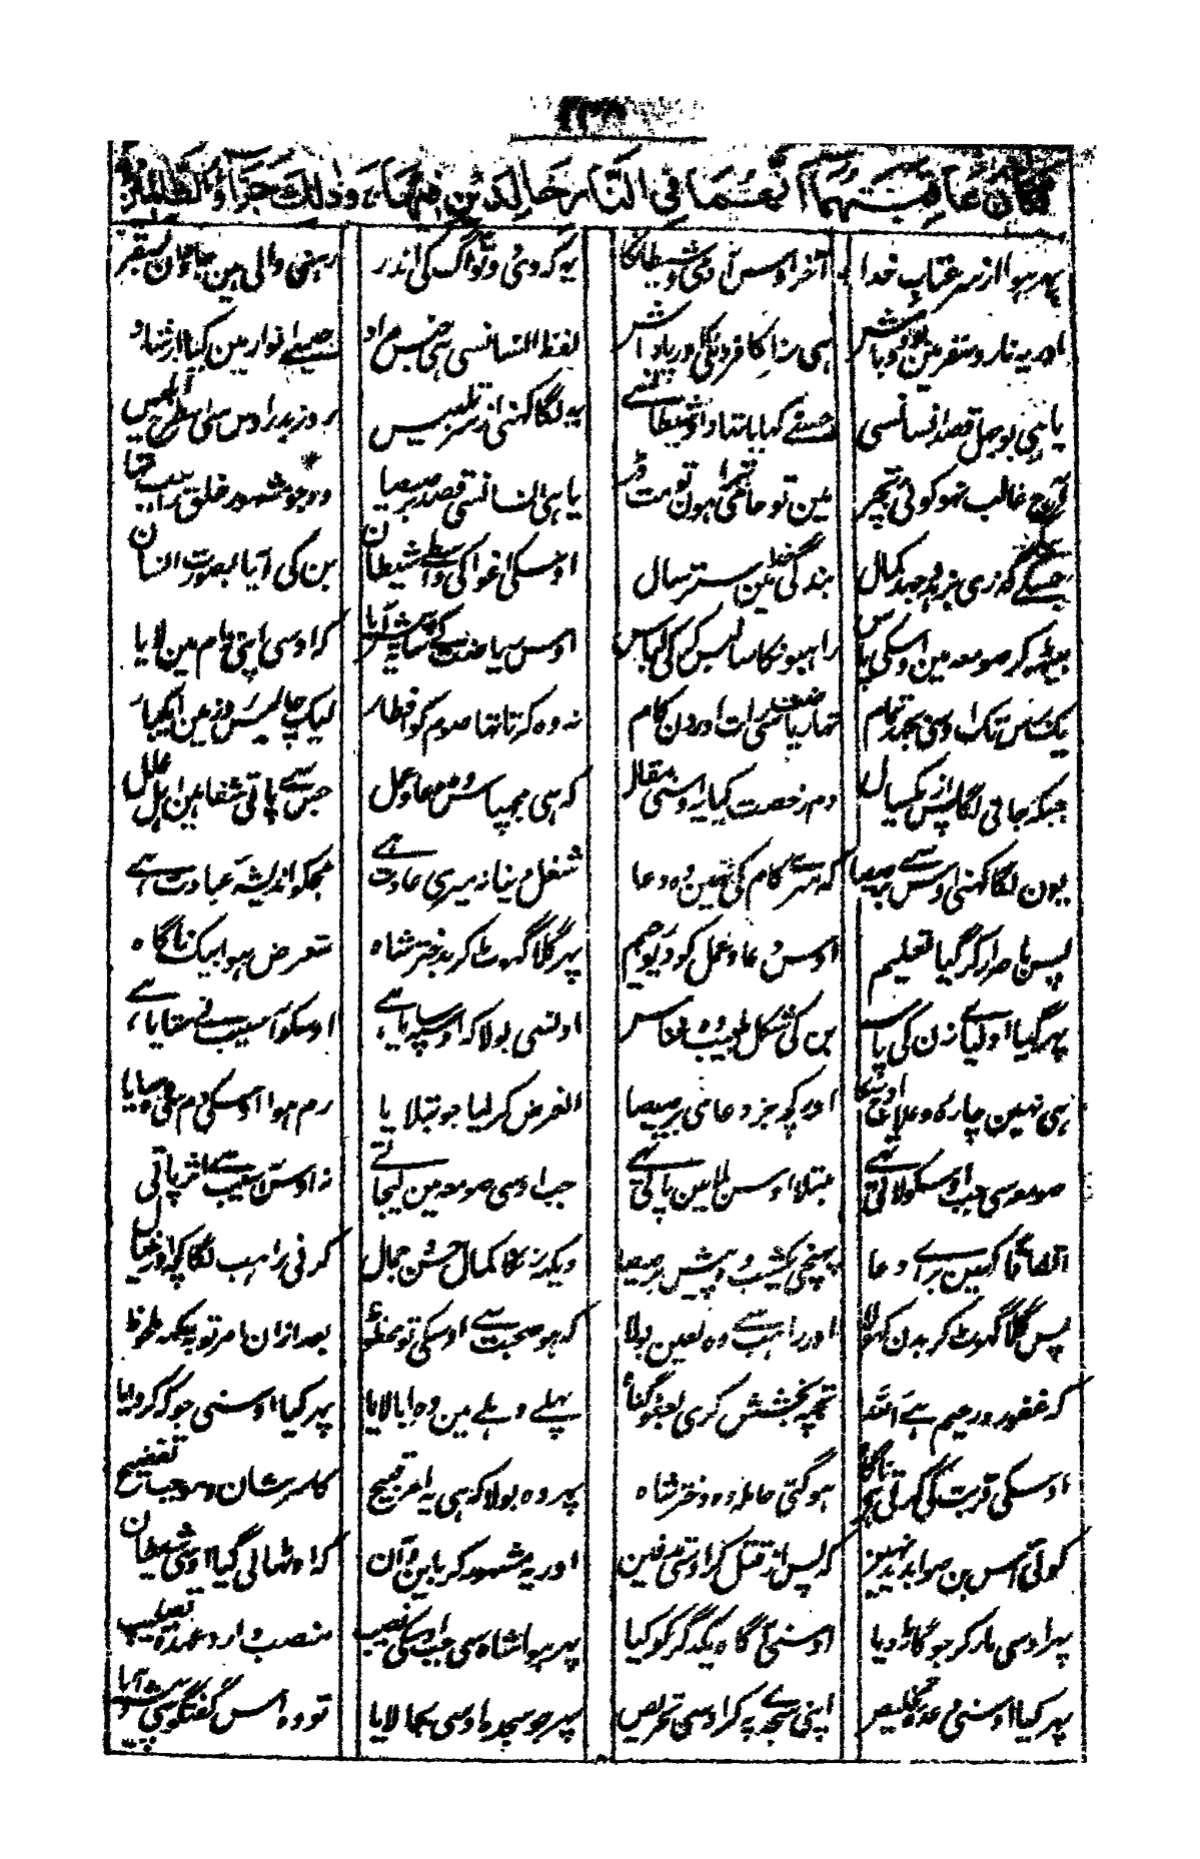 فَكَانَ عَاقِبَتَهُمَا أَنَّهُمَا فِي النَّارِ خَالِدَيْنِ فِيهَا وَذَٰلِكَ جَزَاءُ الظَّالِمِينَ
پهر ہوا از سر عتاب خدا آخر اوس آدمی و شیطانکا یہ کہ وی دونو آگ کی اندر رہنی والی ہین
اور یہ نار و سقر مین ہی سزا کافرونکی در پاداش لفظ انسانسی ہی جنس مراد جسے انوار مین کیا ارشاد
یا ہی بوجہل قصد انسانسی جسنے کہا یہ لگا کہنی از سر تلبیس روز بدر اوس سی اس طرح ابلیس
آج غالب نہو کوئی تجہپر مین تو حامی ہون تیرا تو مت ڈر یا ہی انسانسی قصد برصیصا وہ جو مشہور خلق راہب تھا
جسنے کہ زہد و جہد کمال بندگی مین ستر سال اوسکی اغوا کی واسطے شیطان بن کی آیا بصورت انسان
بیٹھہ کر صومعہ مین اوسکی پاس راہبونکا سا لیس کی لباس اوس ریاضت سے کہ اوسی اپنی دام مین لایا
یک برس تک اوسنی تمام تہا ریاضت سی رات اور دن کام نہ وہ کرتا تہا صوم کو افطار لیک چالیس روز مین ایکبار
جبکہ جانی لگا پس از یکسال دم رخصت کہا یہ اوسنی مقال کہ ہی مجہہ پاس وہ دعا و عمل جس سے پاتی شفا ہین اہل علل
یون لگا کہنی اوس سے برصیصا کہ میرے کام کی نہین وہ دعا شغل دنیا نہ میری عادت ہے مجکو اندیشہ عبادت ہے
پس باصرار کر گیا تعلیم اوس دعا و عمل کو دیو رجیم پهر گلا گہونٹ کر بدختر شاہ متعرض ہو ایک ناگاہ
پهر گیا اولیاے زن کی پاس بن کی شکل طبیب وہ خناس اونسی بولا کہ اوسپہ سایا ہے اوسکو آسیب نے ستایا ہے
ہی نہین چارہ و علاج اوسکا اور کچہ جز دعای برصیصا الغرض کر لیا جو بتلایا رم ہوا اوسکی دم سی وہ سایا
صومعہ سی جب اوسکو لاتی تہے مبتلا اوس بلا مین پاتی تہے جب اوسی صومعہ مین لیجاتے نہ اوس آسیب سے اثر پاتی
اتفاقا کہین براے دعا پہنچی یکشب وہ پیش برصیصا دیکہ زن کا کمال حسن و جمال کرنی راہب لگا کچہ اور خیال
پس گلا گہونٹ کر بدن کہولا اور راہب سے وہ لعین بولا کہ ہو صحبت سے اوسکی تو محظوظ بعد ازان امر توبہ کہہ ملحوظ
کہ غفور و رحیم ہے اللہ تجہپہ بخشش کری بعفو گناہ پہلے وہلے مین وہ ابا لایا پهر کیا اوسنی جو کہ کروایا
اوسکی قربت کی کرتی ہی ناگاہ ہو گئی حاملہ وہ دختر شاہ پهر وہ بولا کہ ہی یہ امر قبیح کسر شان و موجب تفضیح
کوئی اس بن صوابدید نہین کہ پس از قتل کر اوسی تدفین اور یہ مشہور کر باین و آن کہ اوٹہا لی گیا اوسی شیطان
پهر اوسی مار کر جو گاڑ دیا اوسنی آگاہ یکدگر کو کیا پهر ہوا شاہ سی جب اوسکی نصیب منصب دار و عہدہ تصلیب
پهر کیا اوسنی وعدہ تخلیص اپنی سجدے پہ کر اوسی تحریص پهر جو سجدہ اوسی بجا لایا تو وہ اس گفتگو سی پیش آیا